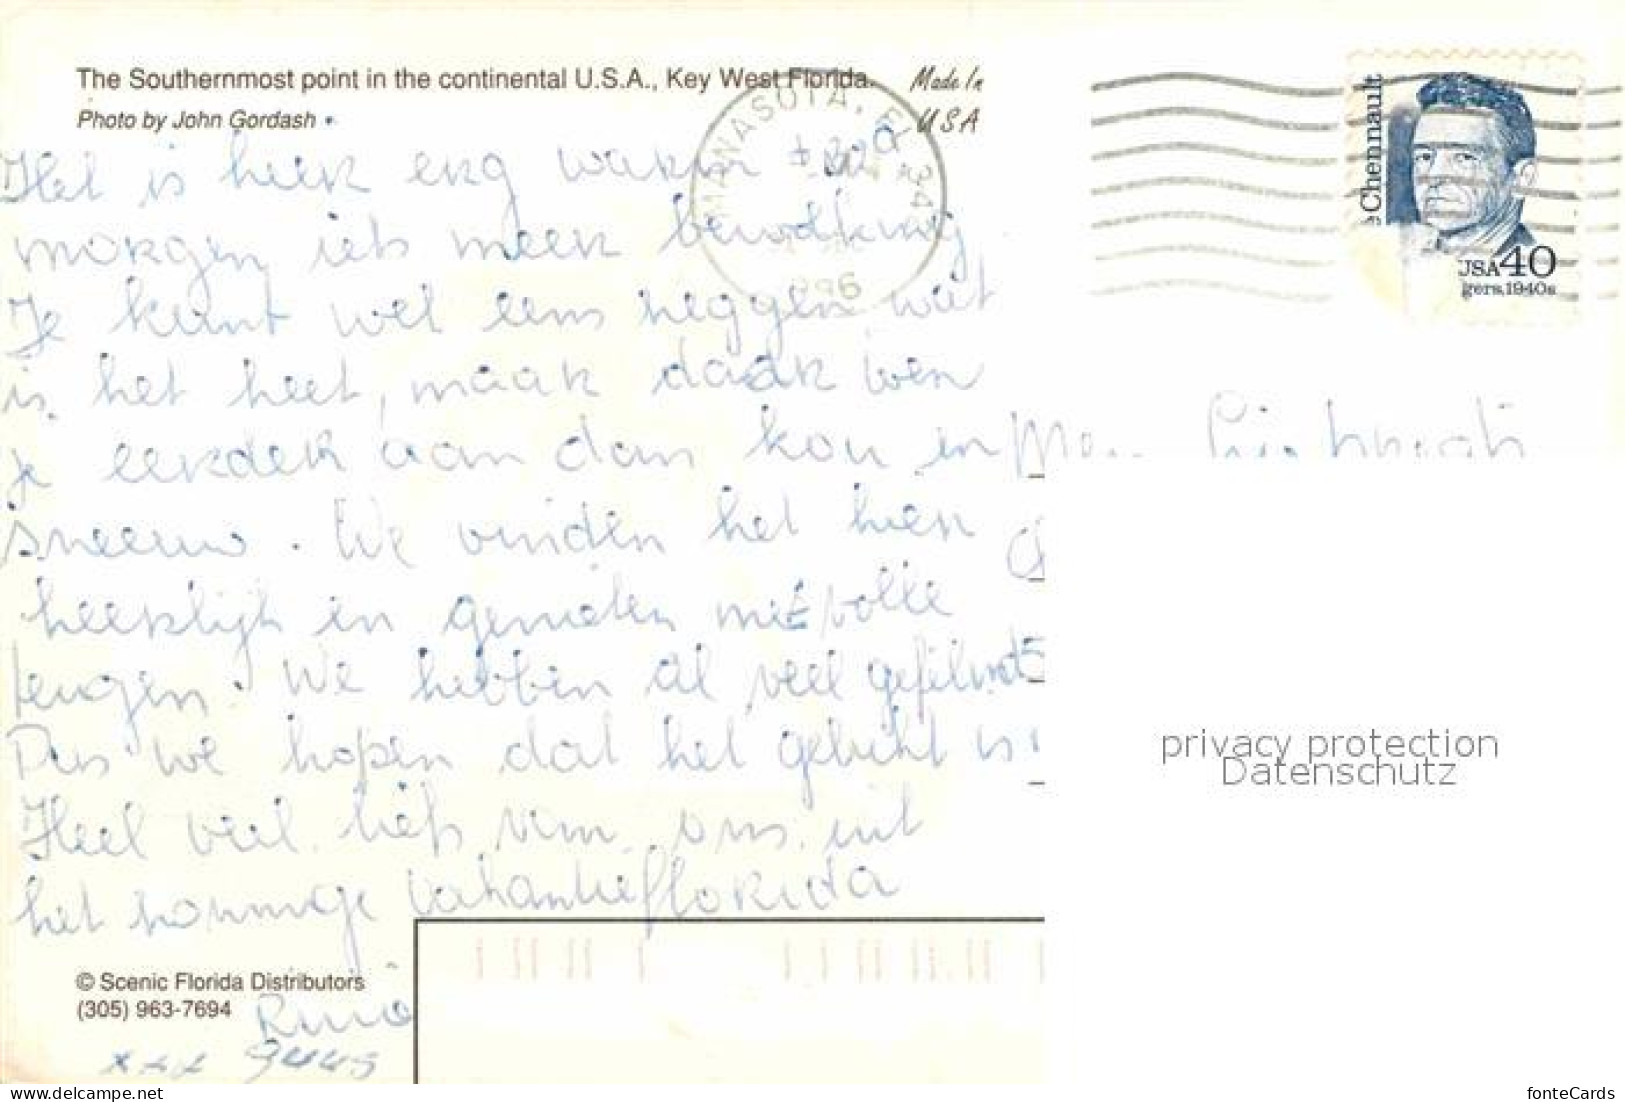 The Southernmost point in the continental U.S.A., Key West Florida.
Photo by John Gordash
Made In
USA
MANASOTA, FL 34
996
Chennault
USA 40
gers, 1940s
Het is heer erg warm ± 30°
morgen iets meer bewolking
Je kunt wel eens zeggen wat
is het heet, maar daar ben
je eerder aan dan kou en
sneeuw. We vinden het hier
heerlijk en genieten met volle
teugen. We hebben al veel gefilmd
Dus we hopen dat het gelukt is
Heel veel liefs van ons uit
het zonnige vakantie florida
© Scenic Florida Distributors
(305) 963-7694
xxx Guus
privacy protection
Datenschutz
www.delcampe.net
fonteCards